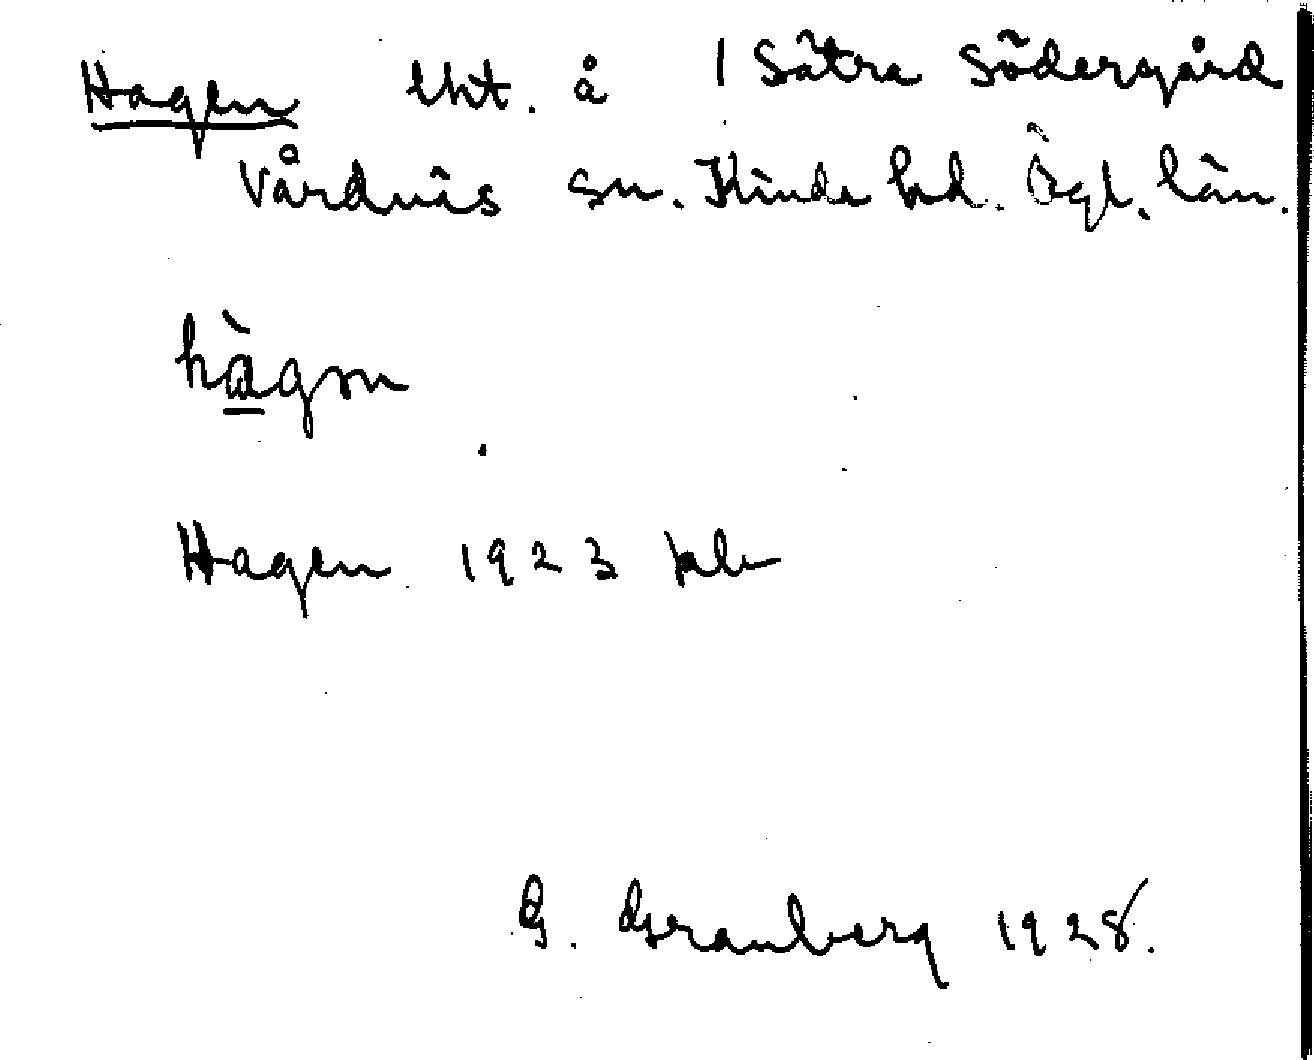 Hagen lht. å 1 Sätra Södergård
Vårdnäs sn. Kinda hd. Ögl. län.
hàgən
Hagen 1923 jdb
G. Granberg 1928.